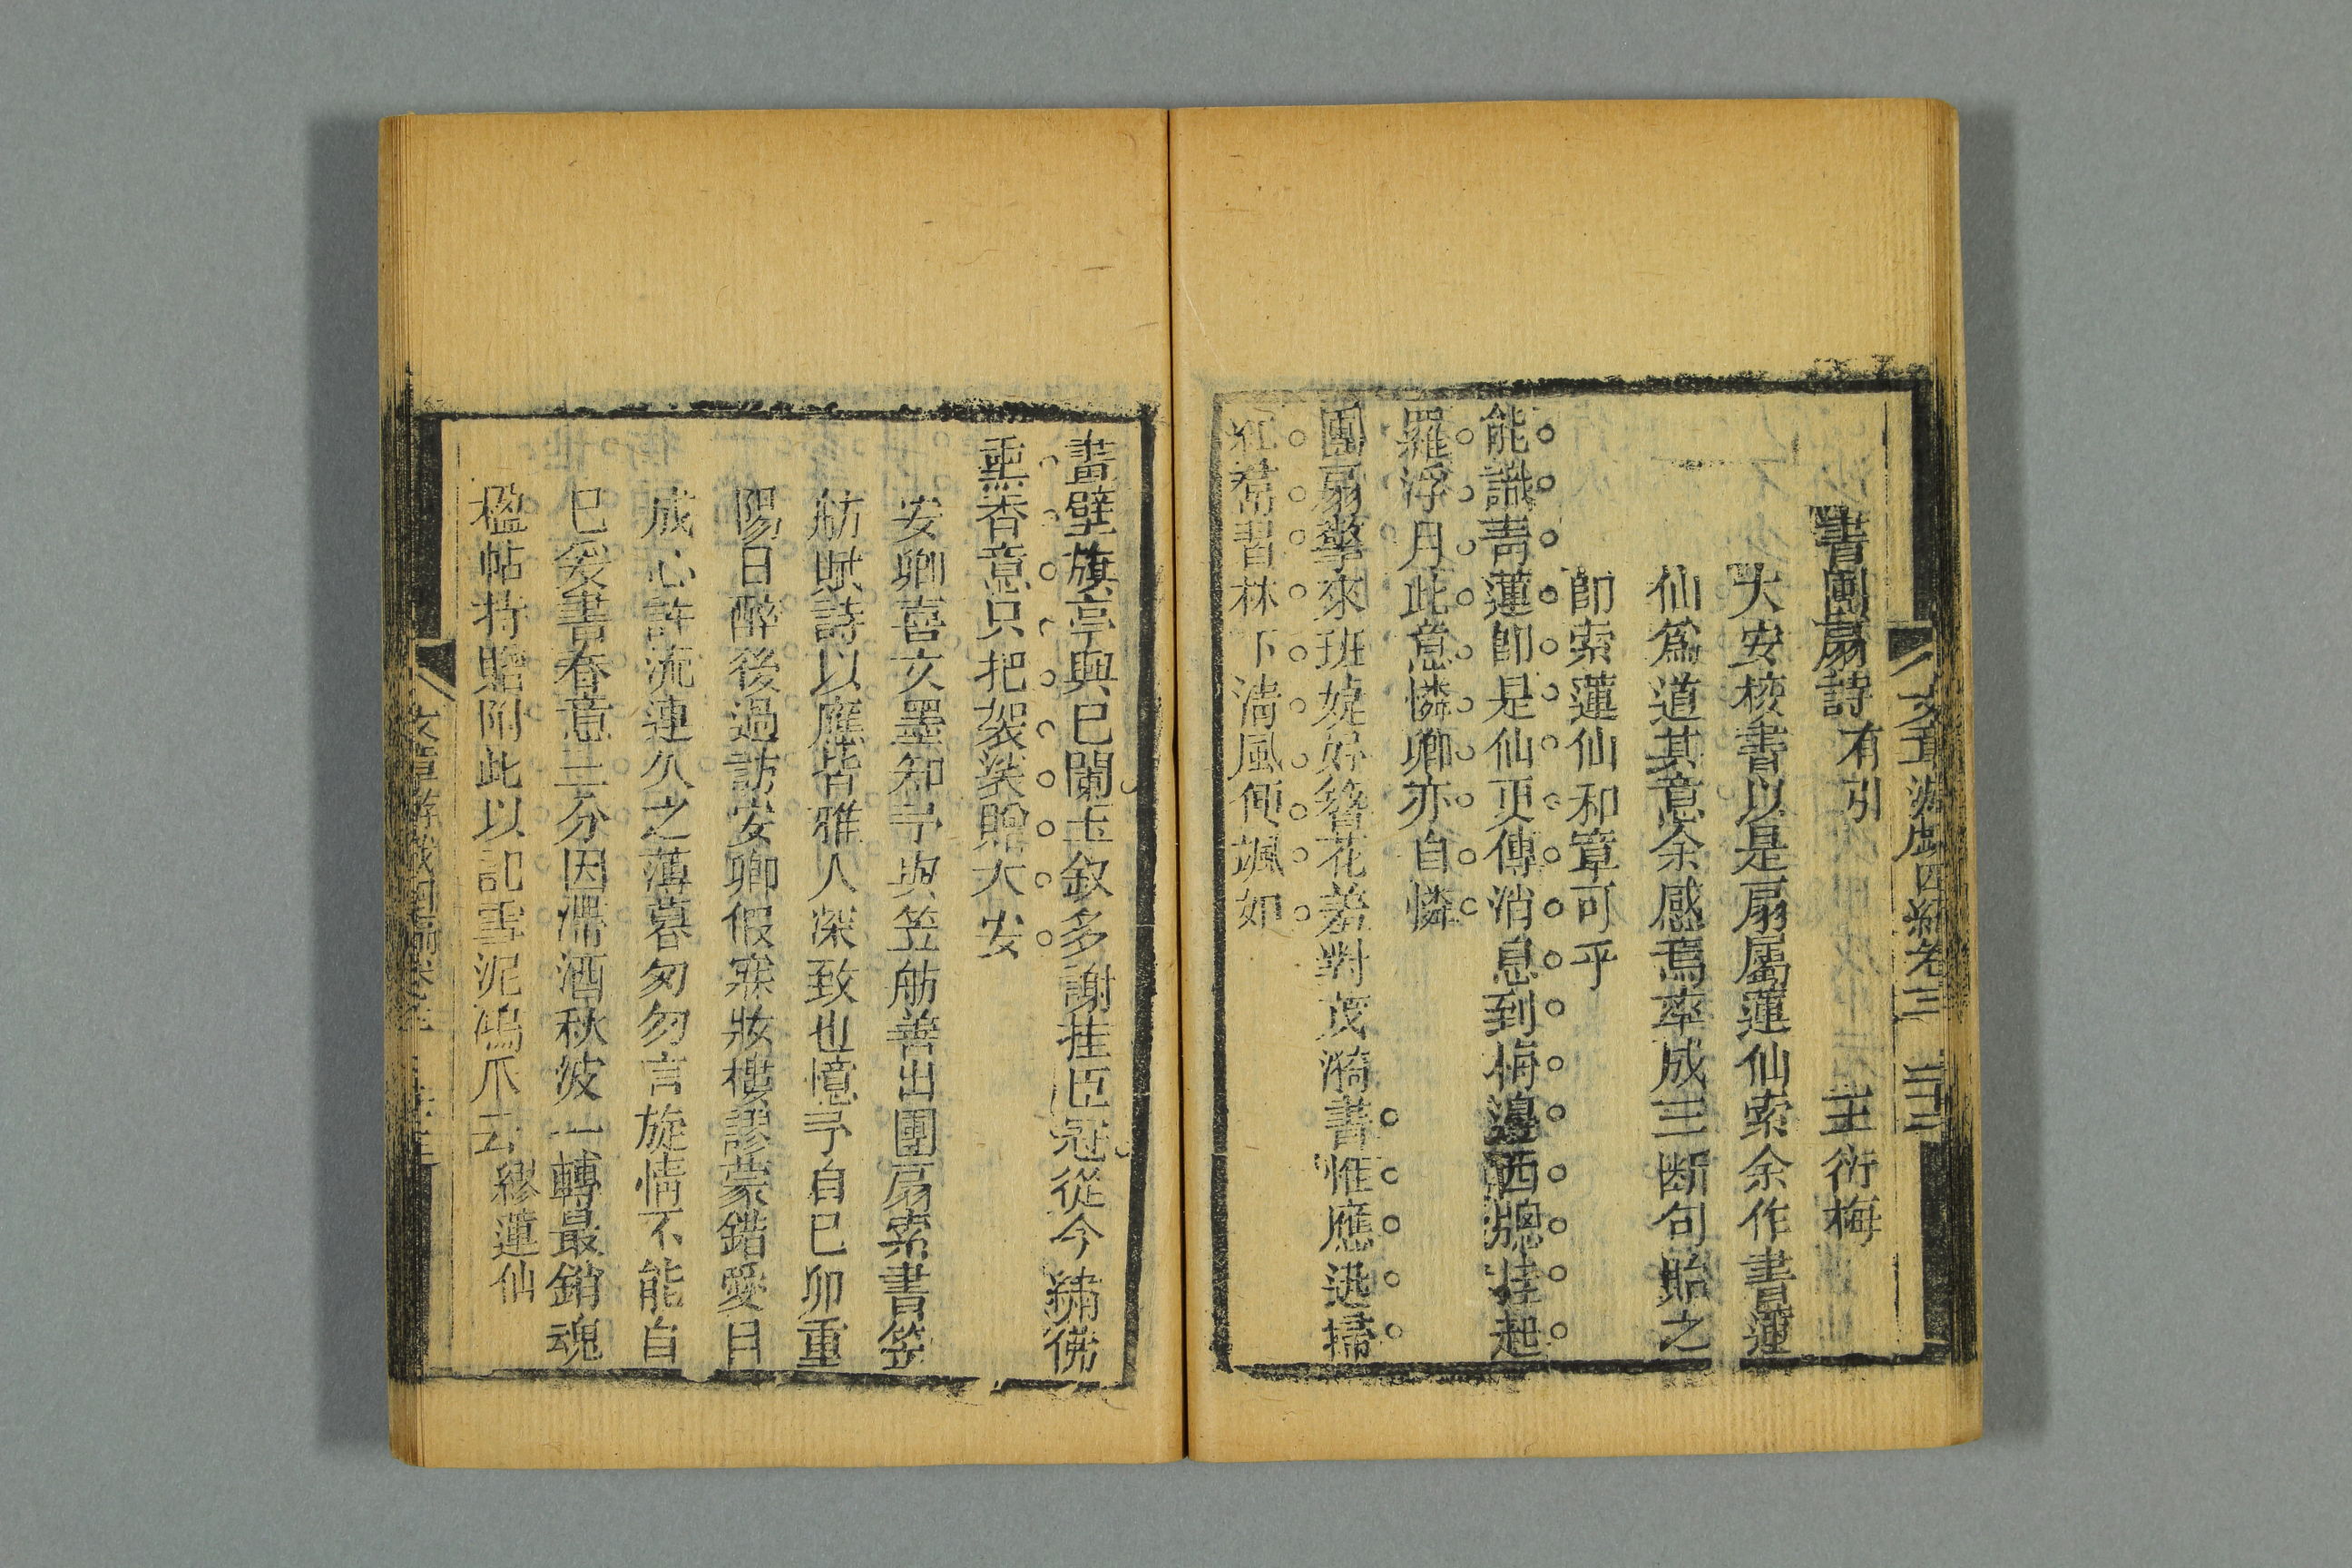 文章游戲四編卷三
書團扇詩 有引 王衍梅
大安校書以是扇屬蓮仙索余作書蓮
仙爲道其意余感焉率成三断句貽之
卽索蓮仙和章可乎
能識靑蓮卽是仙更傳消息到侮邊西牕挂起
羅浮月此意憐卿亦自憐
團扇擎來班婕妤簪花羞對茂漪書惟應迅掃
紅帬習林下淸風便颯如
畫壁旗亭與已闌玉釵多謝挂臣冠從今繡佛
熏香意只把袈裟贈大安
安卿喜文墨知予與笠舫善出團扇索書笠
舫賦詩以應皆雅人深致也憶予自已卯重
陽日醉後過訪安卿假寐妝樓謬蒙錯愛目
成心許流連久之薄暮匆匆言旋情不能自
已爰書春意三分因滯酒秋波一轉最銷魂
楹帖持贈附此以記雪泥鴻爪云 繆蓮仙
文章游戲四編卷三